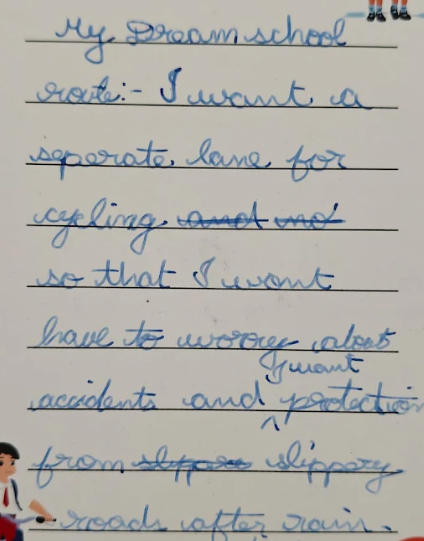 My Dream school
route:- I want a
seperate lane for
cycling and no
so that I wont
have to worry about
accidents and I want protection
from slippery
roads after rain.